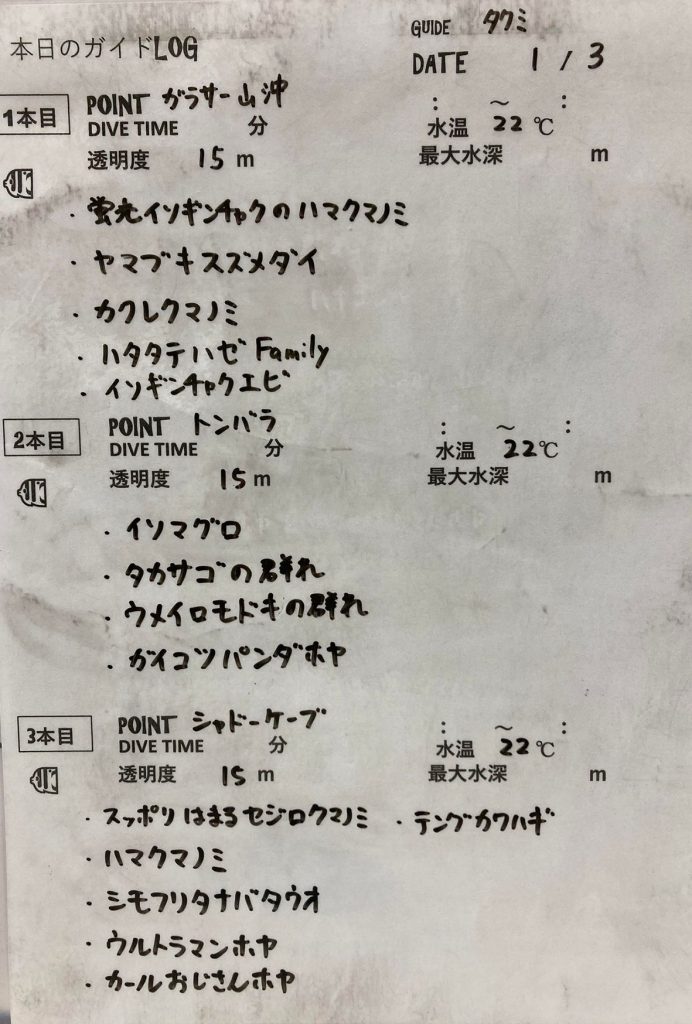 GUIDE タクミ
本日のガイドLOG
DATE 1 / 3
1本目 POINT ガラサー山沖 : ～ :
DIVE TIME 分 水温 22 ℃
透明度 15 m 最大水深 m
・蛍光イソギンチャクのハマクマノミ
・ヤマブキスズメダイ
・カクレクマノミ
・ハタタテハゼ Family
・イソギンチャクエビ
2本目 POINT トンバラ : ～ :
DIVE TIME 分 水温 22℃
透明度 15 m 最大水深 m
・イソマグロ
・タカサゴの群れ
・ウメイロモドキの群れ
・ガイコツパンダホヤ
3本目 POINT シャドーケーブ : ～ :
DIVE TIME 分 水温 22℃
透明度 15 m 最大水深 m
・スッポリはまるセジロクマノミ ・テングカワハギ
・ハマクマノミ
・シモフリタナバタウオ
・ウルトラマンホヤ
・カールおじさんホヤ